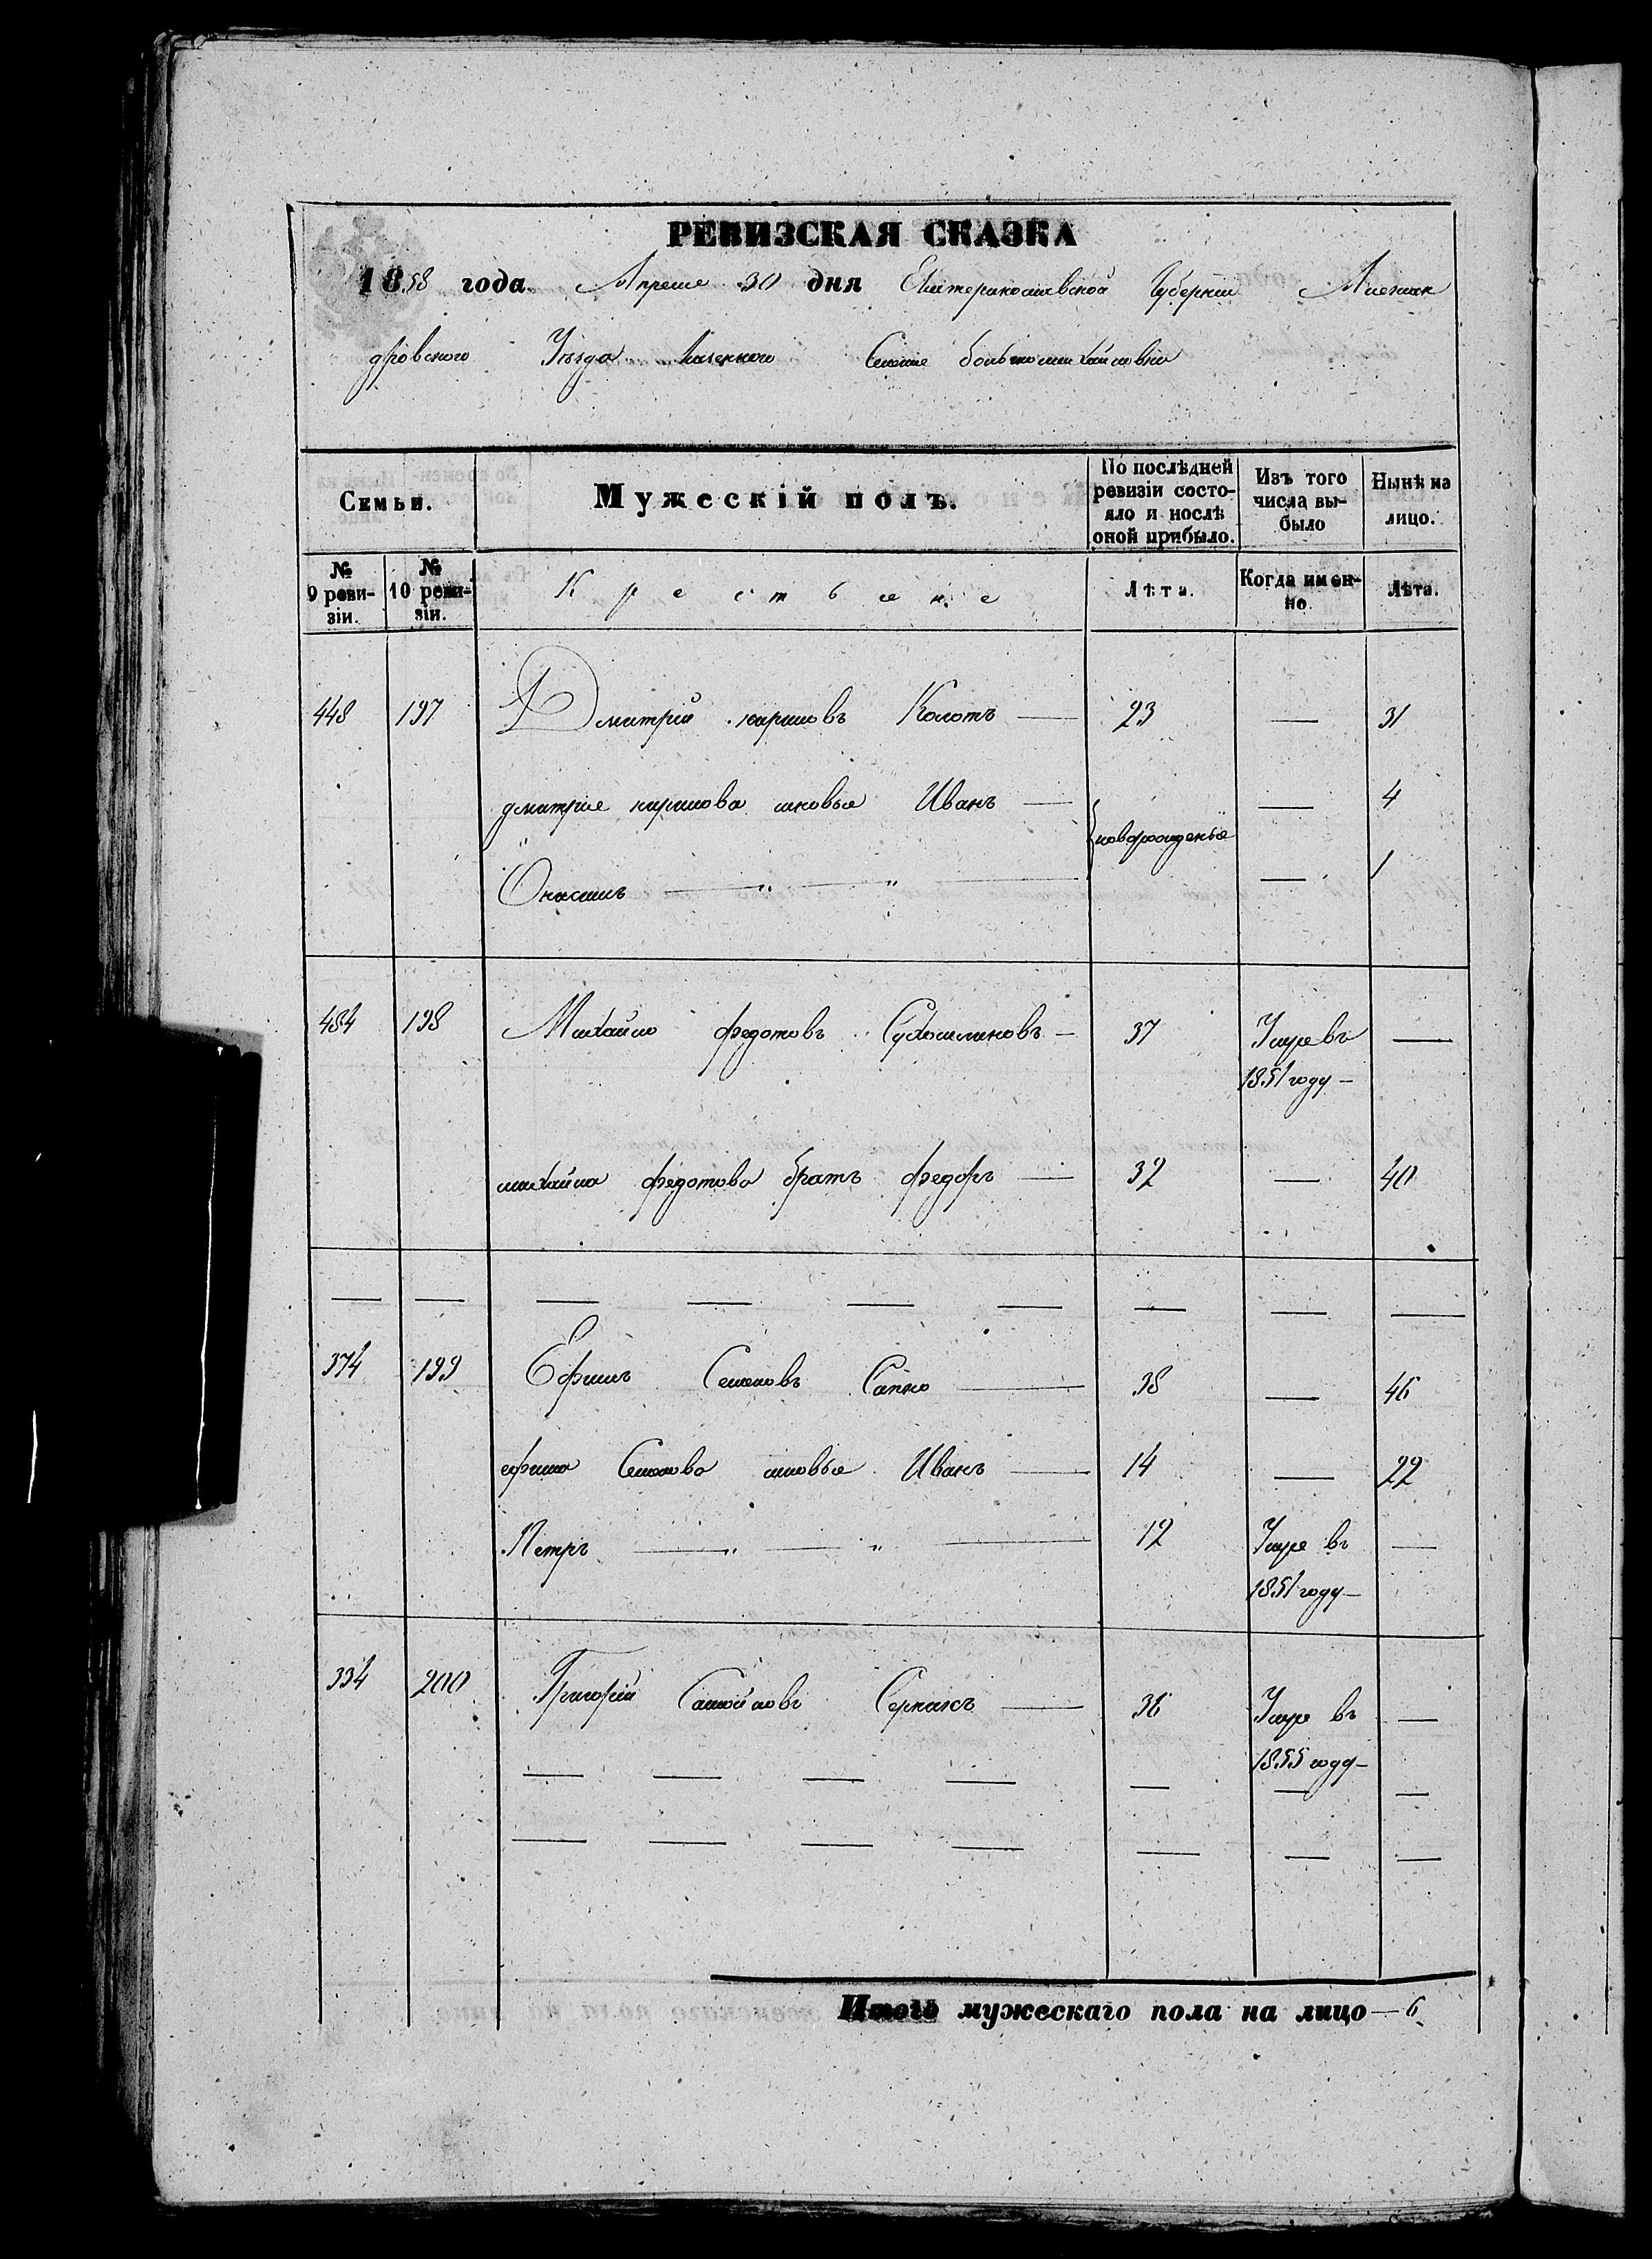 РЕВИЗСКАЯ СКАЗКА
1858 года Апреле 30 дня Екатеринославской Губернии Алексан
дровского Уезда Казенного Селение большомихайловки
Семьи.
Мужескій полъ.
По послѣдней ревизіи состо-
яло и послѣ оной прибыло.
Изъ того числа вы-
было
Нынѣ на лицо.
№ 9 реви-
зіи.
№ 10 реви-
зіи.
Крестьяне
Лѣта.
Когда имен-
но.
Лѣта.
448 197 Дмитрий кириловъ Колотъ — 23 — 31
дмитрие кирилова Иванъ — новорожденые — 4
— " — " — — 1
484 198 Михайло федотовъ — 37 Умре въ —
1851 году —
михайла федотова братъ федоръ — 32 — 40
— — — — — — — — —
374 199 Ефимъ Семеновъ Сапко — 38 — 46
ефима Семенова Иванъ — 14 — 22
Петръ — " — " — 12 Умре въ —
1851 году —
334 200 Григорій Самойловъ — 36 Умре въ —
1855 году —
— — — — — — —
— — — — — — —
Итого мужескаго пола на лицо — 6